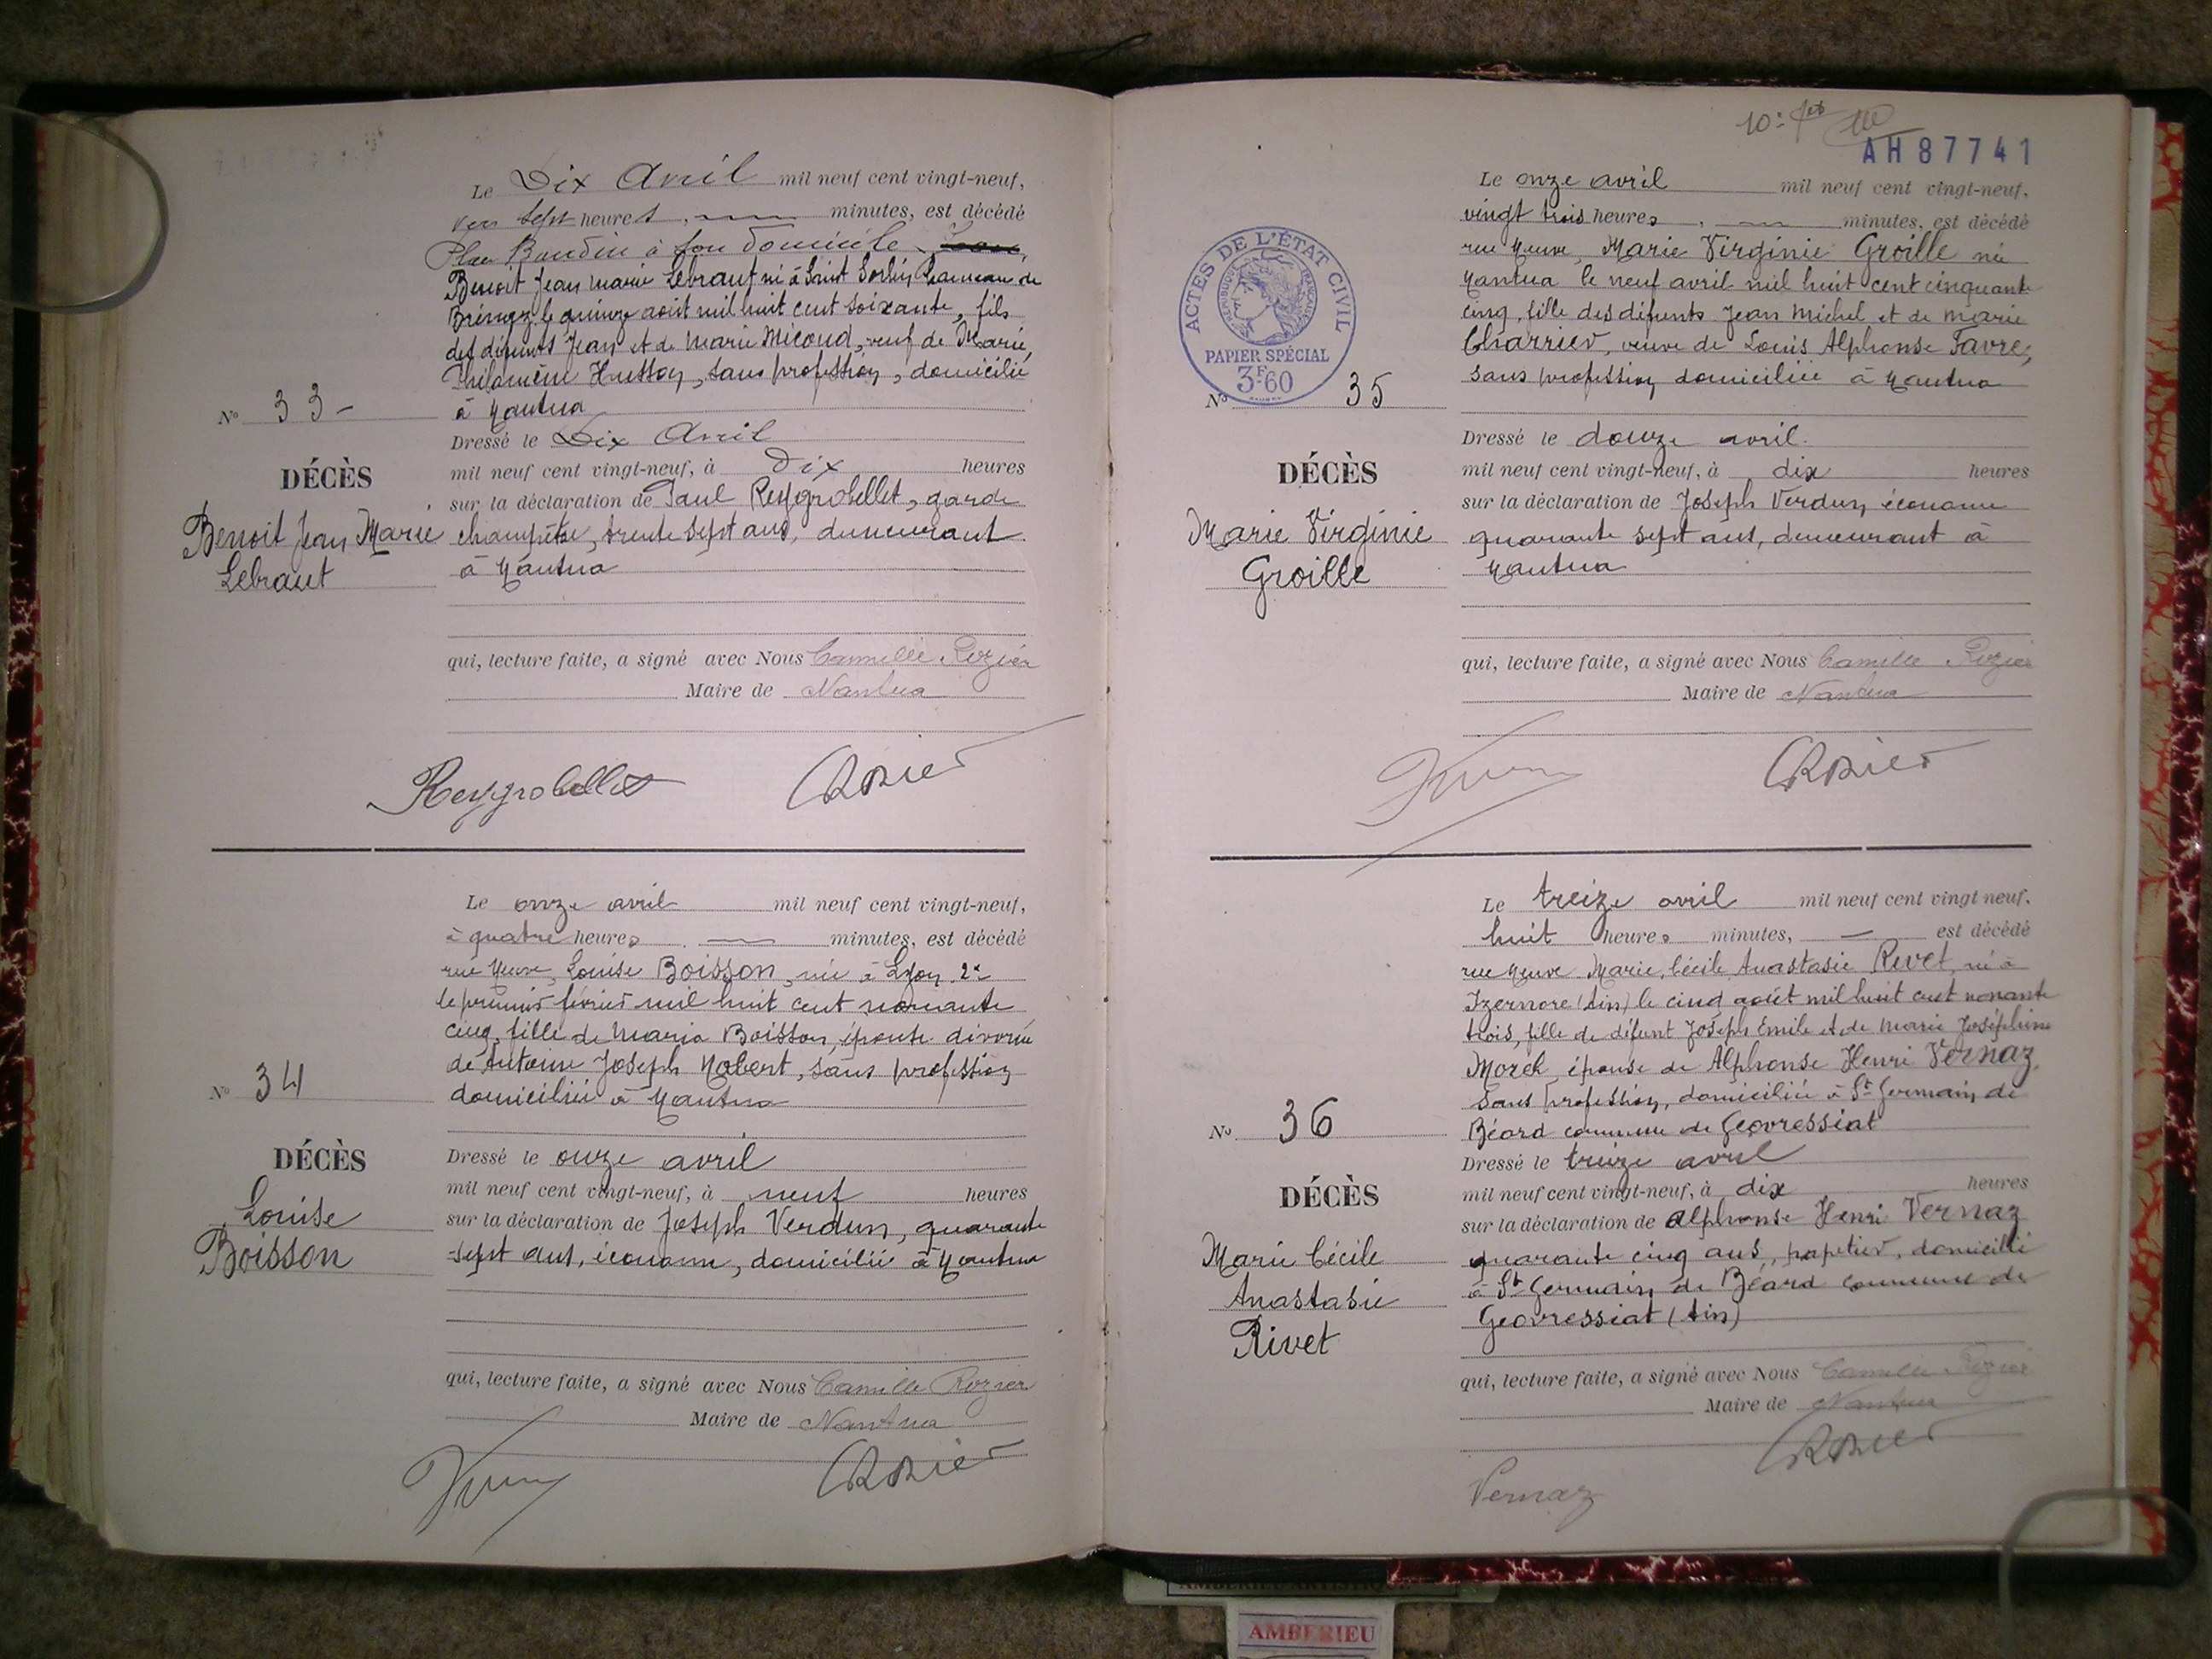 Le Dix Avril mil neuf cent vingt-neuf,
vers sept heures, minutes, est décédé
Place Baudin à son domicile
Benoit Jean Marie Lebraut né à Saint Sorlin hameau de
le quinze août mil huit cent soixante, fils
des défunts Jean et de Marie Micoud, veuf de Marie
Philomène Husson, sans profession, domicilié
à Nantua
No 33 -
DÉCÈS
Benoit Jean Marie
Lebraut
Dressé le Dix Avril
mil neuf cent vingt-neuf, à Dix heures
sur la déclaration de Paul Reygrobellet, garde
champêtre, trente sept ans, demeurant
à Nantua
qui, lecture faite, a signé avec Nous Camille Rozier
Maire de Nantua
Reygrobellet CRozier
Le onze avril mil neuf cent vingt-neuf,
à quatre heures, minutes, est décédé
rue Neuve, Louise Boisson, née à Lyon 2e
le premier février mil huit cent nonante
cinq, fille de Maria Boisson, épouse divorcée
de Antoine Joseph Nobert, sans profession
domiciliée à Nantua
No 34
DÉCÈS
Louise
Boisson
Dressé le onze avril
mil neuf cent vingt-neuf, à neuf heures
sur la déclaration de Joseph Verdun, quarante
sept ans, économe, domicilié à Nantua
qui, lecture faite, a signé avec Nous Camille Rozier
Maire de Nantua
CRozier
AH87741
ACTES DE L'ÉTAT CIVIL
RÉPUBLIQUE FRANÇAISE
PAPIER SPÉCIAL
3F60
Le onze avril mil neuf cent vingt-neuf,
vingt trois heures, minutes, est décédé
rue Neuve, Marie Virginie Groille née
Nantua le neuf avril mil huit cent cinquante
cinq, fille des défunts Jean Michel et de Marie
Charrier, veuve de Louis Alphonse Favre,
sans profession domiciliée à Nantua
No 35
DÉCÈS
Marie Virginie
Groille
Dressé le douze avril.
mil neuf cent vingt-neuf, à dix heures
sur la déclaration de Joseph Verdun, économe
quarante sept ans, demeurant à
Nantua
qui, lecture faite, a signé avec Nous Camille Rozier
Maire de Nantua
CRozier
Le treize avril mil neuf cent vingt neuf,
huit heures minutes, est décédé
rue Neuve Marie, Cécile Anastasie Rivet, né à
Izernore (Ain) le cinq août mil huit cent nonante
trois, fille de défunt Joseph Emile et de Marie Joséphine
Morel, épouse de Alphonse Henri Vernaz
sans profession, domiciliée à St Germain de
Béard commune de Geovressiat
No 36
DÉCÈS
Marie Cécile
Anastasie
Rivet
Dressé le treize avril
mil neuf cent vingt-neuf, à dix heures
sur la déclaration de Alphonse Henri Vernaz
quarante cinq ans, papetier, domicilié
à St Germain de Béard commune de
Geovressiat (Ain)
qui, lecture faite, a signé avec Nous Camille Rozier
Maire de Nantua
CRozier
Vernaz
AMBERIEU